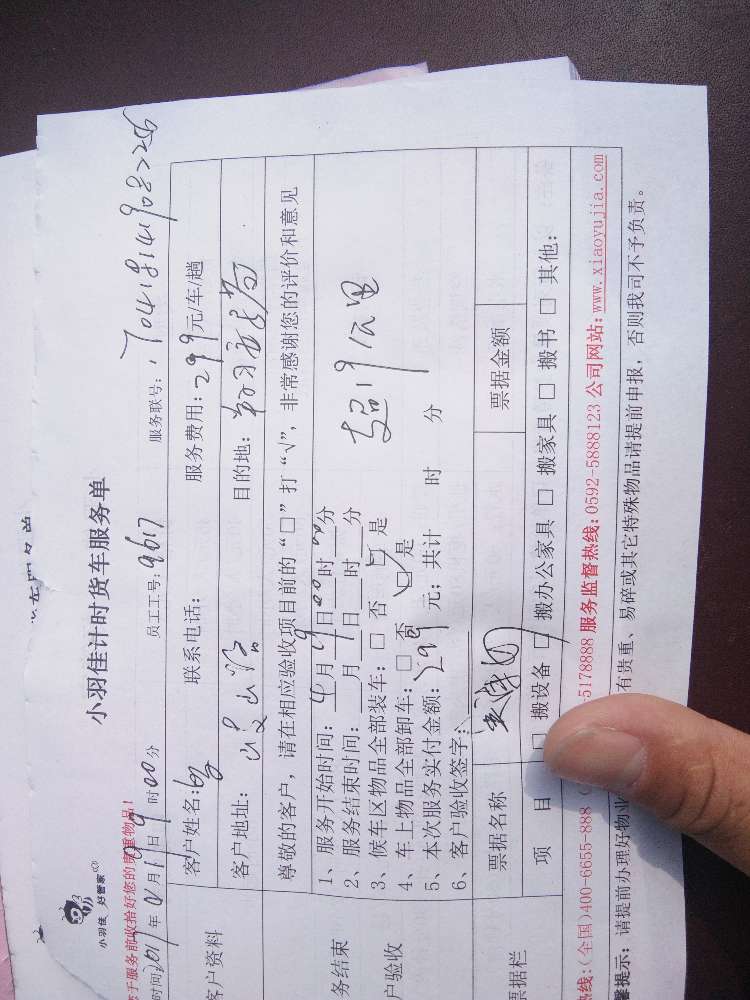 小羽佳 好管家
小羽佳计时货车服务单
于服务前收拾好您的贵重物品!
时间: 2017年4月9日9时00分 员工工号: 9617 服务联号: 1704181419087256
客户资料
客户姓名: 联系电话: 服务费用: 299元/车/趟
客户地址: 目的地:
尊敬的客户, 请在相应验收项目前的“□”打“√”, 非常感谢您的评价和意见
务结束
户验收
1、服务开始时间: 4月9日00时00分
2、服务结束时间: __月__日__时__分
3、候车区物品全部装车: □ 否 ☑ 是
4、车上物品全部卸车: □ 否 ☑ 是
超19公里
5、本次服务实付金额: 299 元; 共计 时 分
6、客户验收签字:
票据栏
票据名称 票据金额
项目 □ 搬设备 □ 搬办公家具 □ 搬家具 □ 搬书 □ 其他:
热线:(全国)400-6655-888 -5178888 服务监督热线: 0592-5888123 公司网站: www.xiaoyujia.com
馨提示: 请提前办理好物业 有贵重、易碎或其它特殊物品请提前申报, 否则我司不予负责。